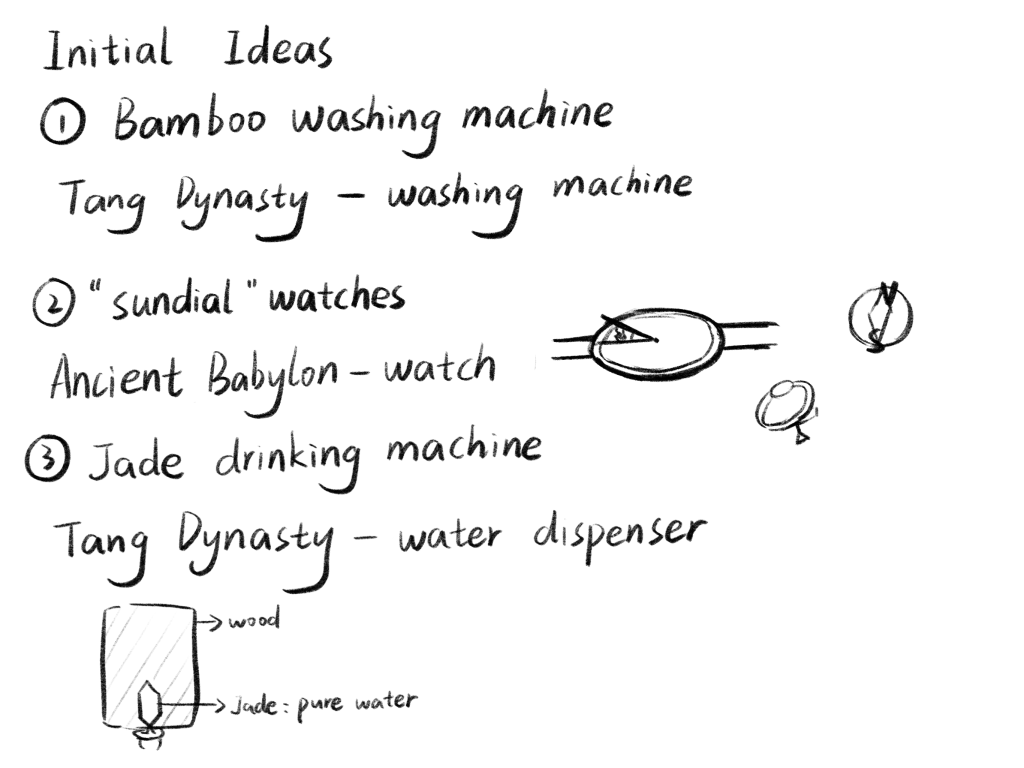 Initial Ideas
① Bamboo washing machine
Tang Dynasty - washing machine
② "sundial" watches
Ancient Babylon - watch
N
S
③ Jade drinking machine
Tang Dynasty - water dispenser
→ wood
→ Jade: pure water